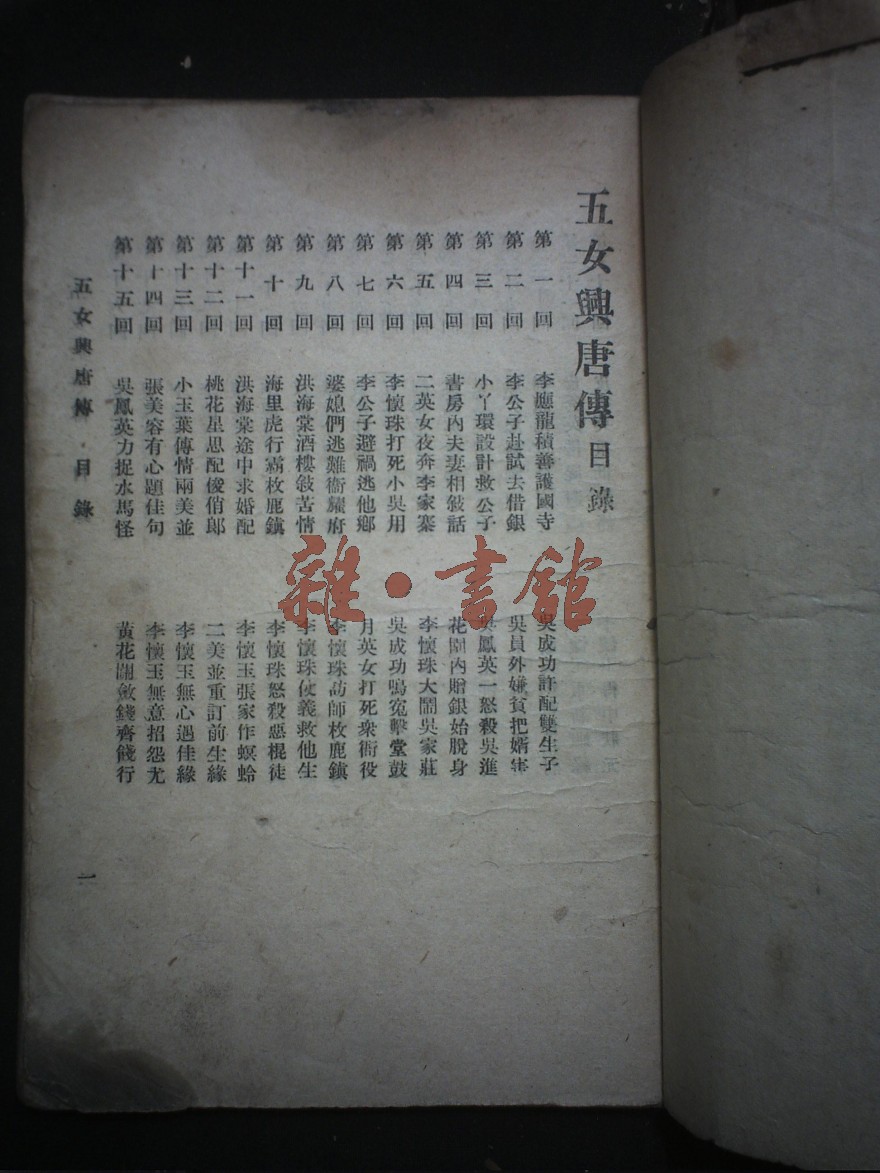 五女興唐傳 目錄
第一回 李應龍積善護國寺 吳成功許配雙生子
第二回 李公子赴試去借銀 吳員外嫌貧把婿害
第三回 小丫環設計救公子 吳鳳英一怒殺吳進
第四回 書房內夫妻相敍話 花園內贈銀始脫身
第五回 二英女夜奔李家寨 李懷珠大鬧吳家莊
第六回 李懷珠打死小吳用 吳成功鳴冤擊堂鼓
第七回 李公子避禍逃他鄉 月英女打死衆衙役
第八回 婆媳們逃難衞耀府 李懷珠訪師枚鹿鎮
第九回 洪海棠酒樓敍苦情 李懷珠仗義救他生
第十回 海里虎行霸枚鹿鎮 李懷珠怒殺惡棍徒
第十一回 洪海棠途中求婚配 李懷玉張家作螟蛉
第十二回 桃花星思配俊俏郎 二美並重訂前生緣
第十三回 小玉葉傳情兩美並 李懷玉無心遇佳緣
第十四回 張美容有心題佳句 李懷玉無意招怨尤
第十五回 吳鳳英力捉水馬怪 黃花關斂錢齊餞行
五女興唐傳 目錄
一
雜·書館